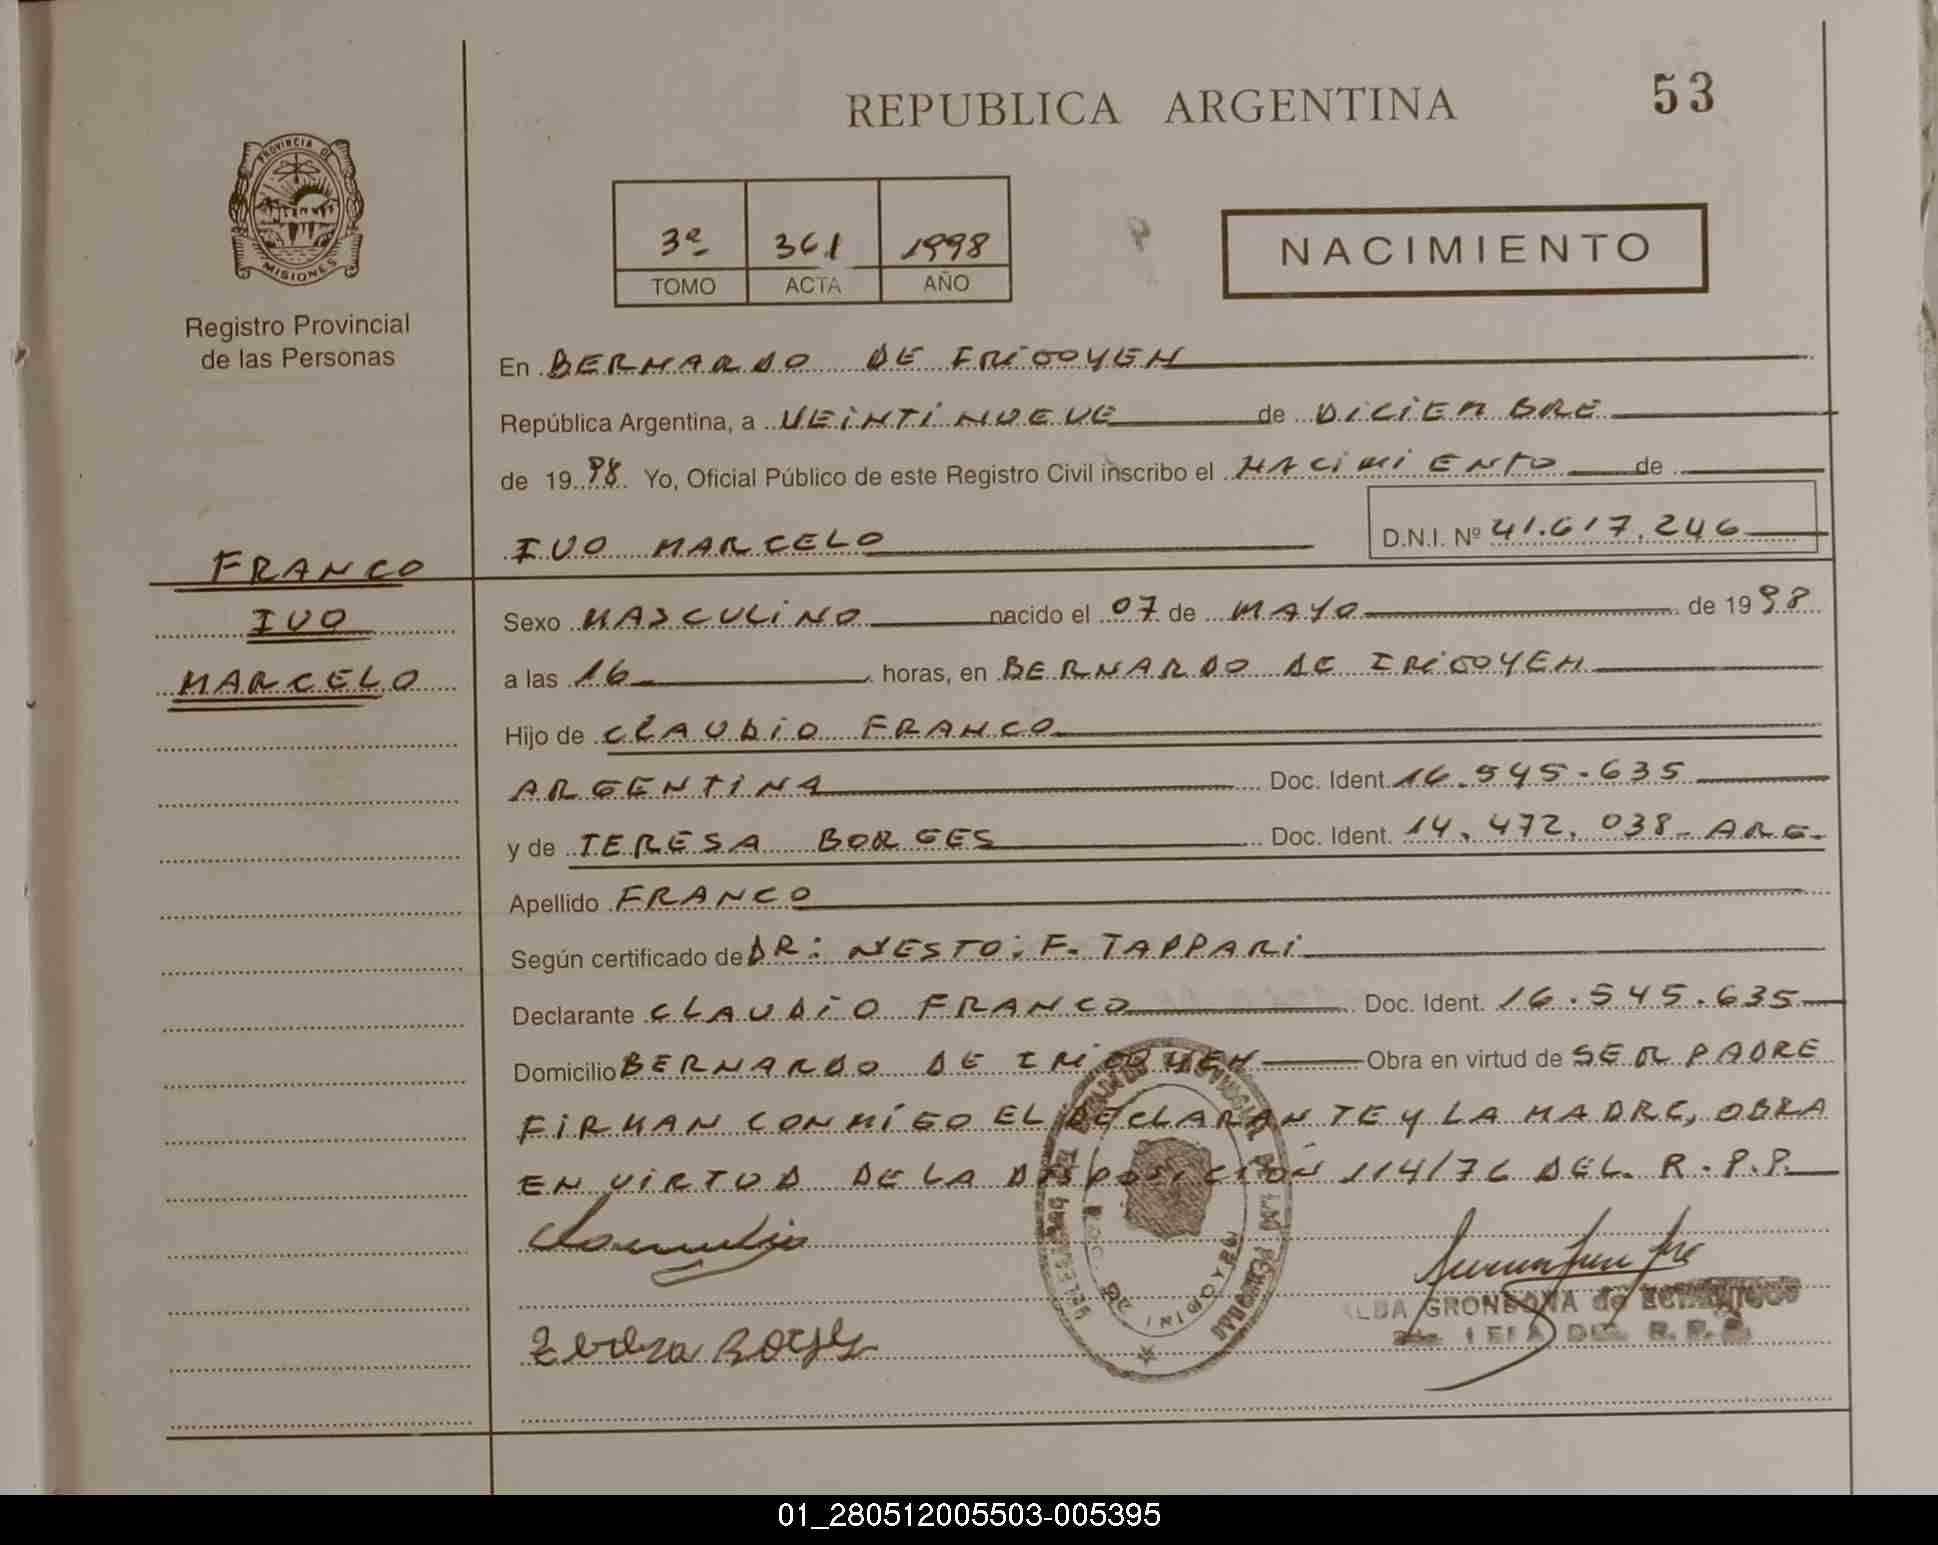 REPUBLICA ARGENTINA
53
PROVINCIA DE
MISIONES
Registro Provincial
de las Personas
3º 361 1998
TOMO ACTA AÑO
NACIMIENTO
En BERNARDO DE IRIGOYEN
República Argentina, a VEINTINUEVE de DICIEMBRE
de 1998 Yo, Oficial Público de este Registro Civil inscribo el NACIMIENTO de
IVO MARCELO D.N.I. Nº 41.617.246
FRANCO
IVO
MARCELO
Sexo MASCULINO nacido el 07 de MAYO de 1998
a las 16 horas, en BERNARDO DE IRIGOYEN
Hijo de CLAUDIO FRANCO
ARGENTINA Doc. Ident. 16.545.635
y de TERESA BORGES Doc. Ident. 14.472.038 - ARG.
Apellido FRANCO
Según certificado de DR: NESTO: F. TAPPARI
Declarante CLAUDIO FRANCO Doc. Ident. 16.545.635
Domicilio BERNARDO DE IRIGOYEN Obra en virtud de SER PADRE
FIRMAN CONMIGO EL DECLARANTE Y LA MADRE, OBRA
EN VIRTUD DE LA DISPOSICIÓN 114/76 DEL R.P.P.
GRONDONA de
DEL R.P.P.
01_280512005503-005395